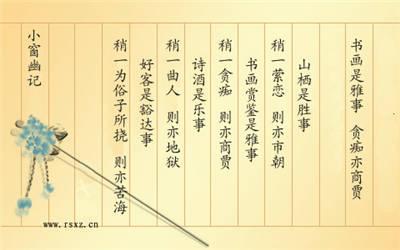 书画是雅事 贪痴亦商贾
山栖是胜事
稍一萦恋 则亦市朝
书画赏鉴是雅事
稍一贪痴 则亦商贾
诗酒是乐事
稍一曲人 则亦地狱
好客是豁达事
稍一为俗子所挠 则亦苦海
小窗幽记
www.rsxz.cn